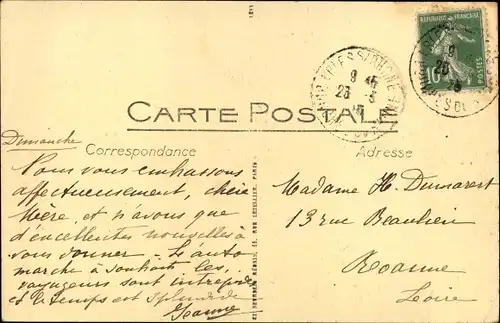 CARTE POSTALE
Correspondance
Adresse
REPUBLIQUE FRANCAISE
10
POSTES
Dimanche
Nous vous embrassons
affectueusement, chère
Mère, et n'avons que
d'excellentes nouvelles à
vous donner - L'auto
marche à souhaits les
voyageurs sont intrépides
et le temps est splendide
Jeanne
Madame H. Dumarest
13 rue Beaulieu
Roanne
Loire